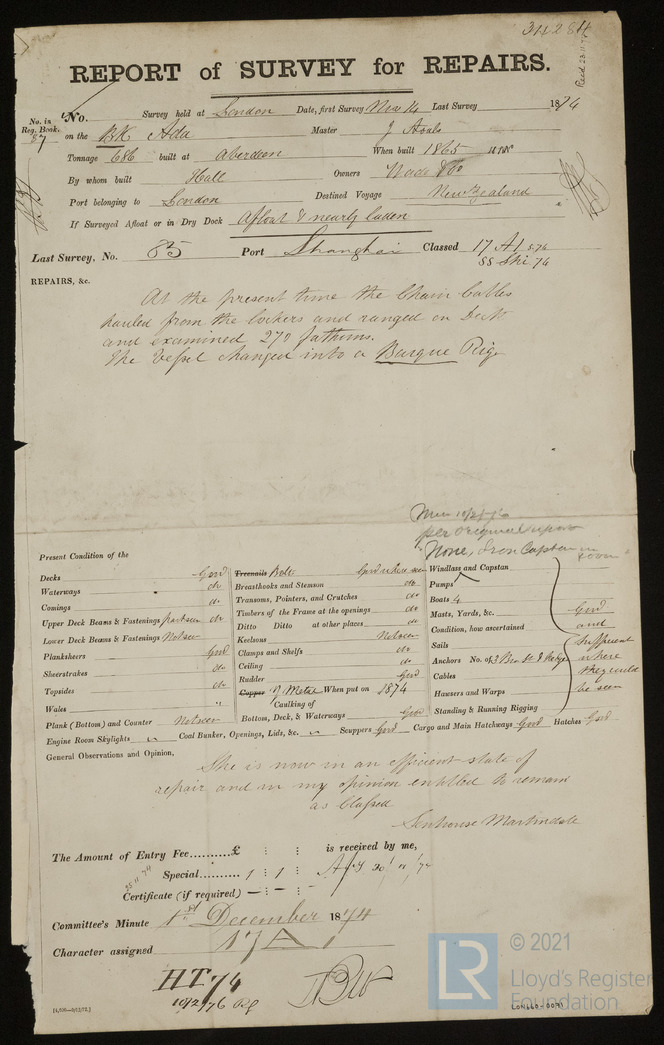 34284
REPORT of SURVEY for REPAIRS.
Recd 23.11.74
No. in Reg. Book. 87
No. Survey held at London Date, first Survey Nov 14 Last Survey 1874
on the BK Ada Master J Hoale
Tonnage 686 built at Aberdeen When built 1865
By whom built Hall Owners Wade & Co
Port belonging to London Destined Voyage New Zealand
If Surveyed Afloat or in Dry Dock Afloat & nearly laden
Last Survey, No. 85 Port Shanghai Classed 17 A1 5.74
SS Shi 74
REPAIRS, &c.
At the present time the Chain Cables
hauled from the lockers and ranged on Deck
and examined 270 fathoms.
The Vessel changed into a Barque Rig
10/2/76
per Original report
None, Iron Capstan in room
Present Condition of the
Decks Good
Waterways do
Comings do
Upper Deck Beams & Fastenings
Lower Deck Beams & Fastenings Not seen
Planksheers Good
Sheerstrakes do
Topsides do
Wales "
Plank (Bottom) and Counter Not seen
Engine Room Skylights Coal Bunker, Openings, Lids, &c. Scuppers Good Cargo and Main Hatchways Good Hatches Good
Treenails Bolts Good where seen
Breasthooks and Stemson do
Transoms, Pointers, and Crutches do
Timbers of the Frame at the openings do
Ditto Ditto at other places do
Keelsons Not seen
Clamps and Shelfs do
Ceiling do
Rudder Good
Copper Y. Metal When put on 1874
Caulking of
Bottom, Deck, & Waterways Good
Windlass and Capstan
Pumps
Boats 4
Masts, Yards, &c.
Condition, how ascertained
Sails
Anchors No. of 3 Bow
Cables
Hawsers and Warps
Standing & Running Rigging
Good
and
Sufficient
where
they could
be seen
General Observations and Opinion,
She is now in an efficient state of
repair and in my opinion entitled to remain
as Classed
Senhouse Martindale
The Amount of Entry Fee..........£ : : is received by me,
Special.......... 1 : 1 :
25 11 74
Certificate (if required)
Committee's Minute 1st December 1874
Character assigned 17 A 1
HT 74
10/2/76
[1,500—9/12/72.]
LR © 2021
Lloyd's Register
Foundation
LON660-0091